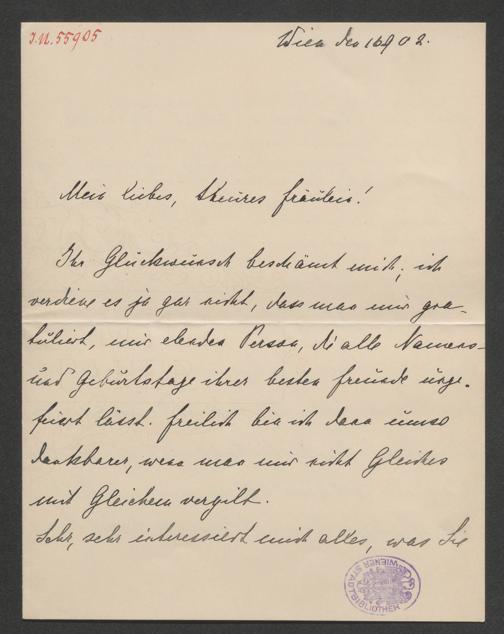 J.N. 55905
Wien den 16/9 02.
Mein liebes, theures Fräulein!
Ihr Glückwunsch beschämt mich; ich
verdiene es ja gar nicht, dass man mir gra-
tuliert, mir elenden Person, die alle Namens-
und Geburtstage ihrer besten Freunde unge-
feiert lässt. Freilich bin ich dann umso
dankbarer, wenn man mir nicht Gleiches
mit Gleichem vergilt.
Sehr, sehr interessiert mich alles, was Sie
WIENER STADTBIBLIOTHEK